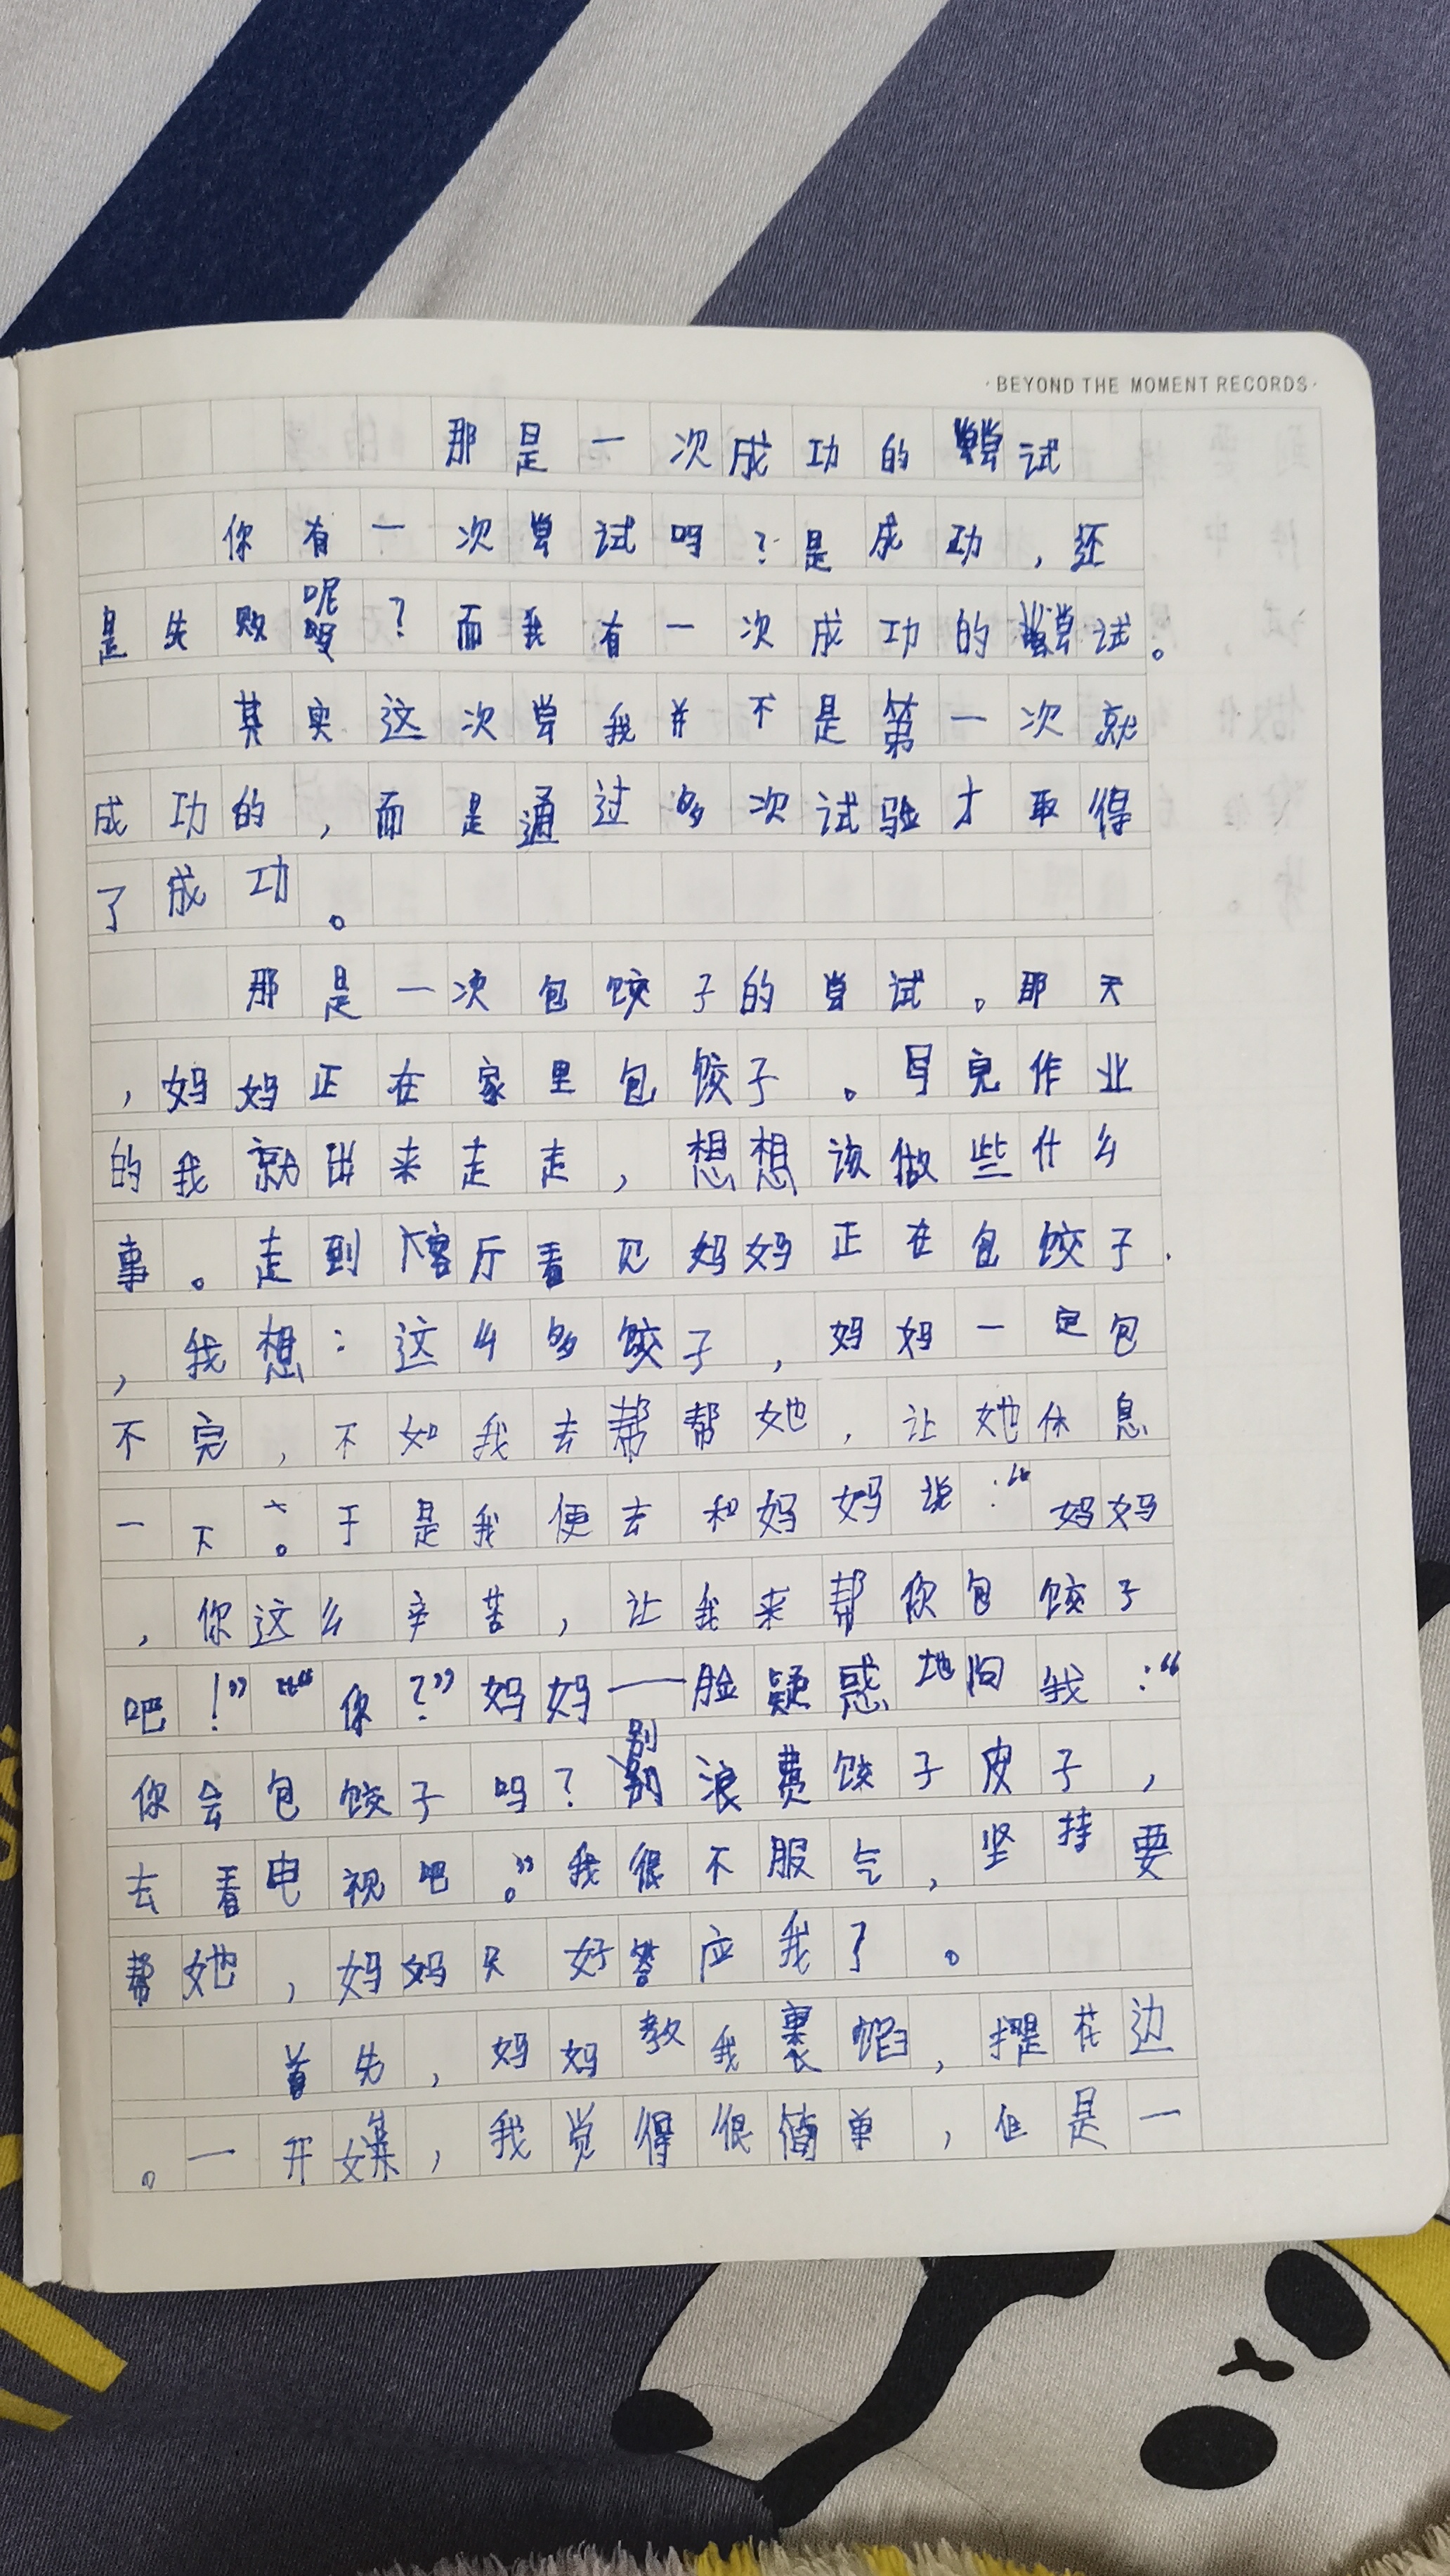 ·BEYOND THE MOMENT RECORDS·
那是一次成功的尝试
你有一次尝试吗？是成功，还
是失败呢？而我有一次成功的尝试。
其实这次尝我并不是第一次就
成功的，而是通过多次试验才取得
了成功。
那是一次包饺子的尝试。那天
，妈妈正在家里包饺子。写完作业
的我就出来走走，想想该做些什么
事。走到客厅看见妈妈正在包饺子
，我想：这么多饺子，妈妈一定包
不完，不如我去帮帮她，让她休息
一下。于是我便去和妈妈说：“妈妈
，你这么辛苦，让我来帮你包饺子
吧！”“你？”妈妈一脸疑惑地问我：“
你会包饺子吗？别浪费饺子皮子，
去看电视吧。”我很不服气，坚持要
帮她，妈妈只好答应我了。
首先，妈妈教我裹馅，捏花边
。一开始，我觉得很简单，但是一